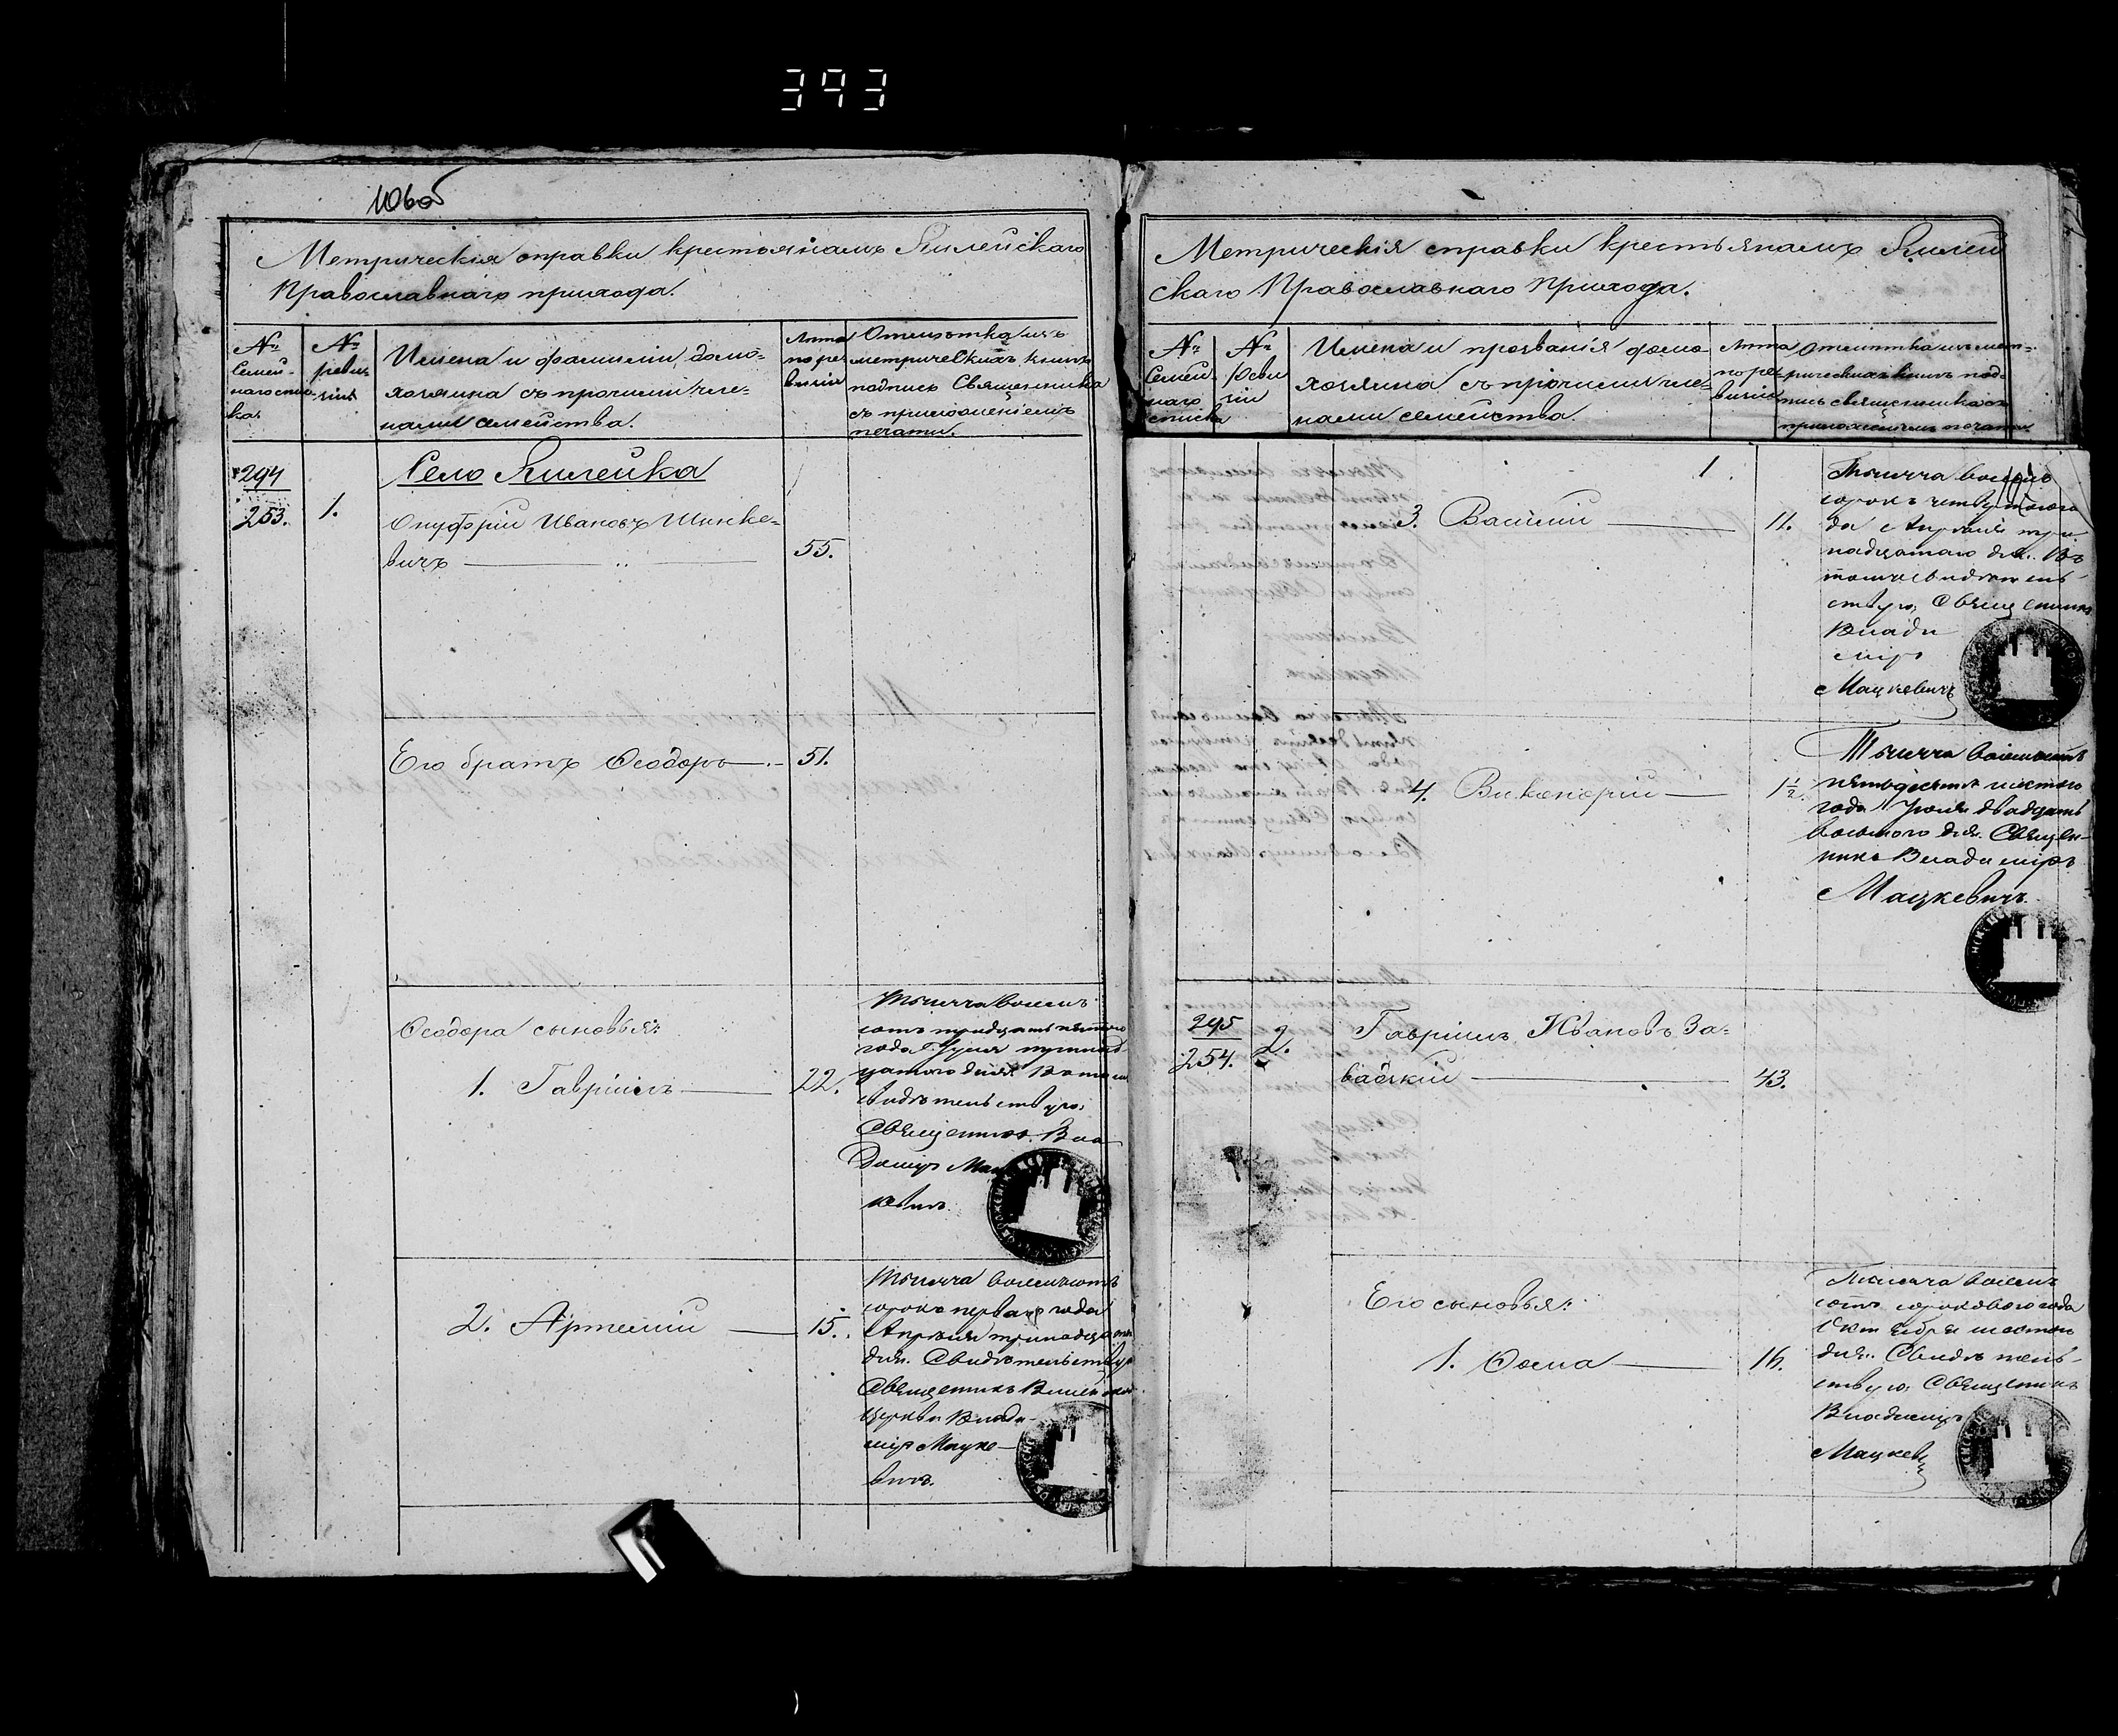 393
106об
Метрическія справки крестьянамъ Вилейскаго
Православнаго прихода.
№
Семей-
наго спис-
ка
№
реви-
зіи
Имена и фамиліи домо-
хозяина съ прочими чле-
нами семейства.
Лѣта
по ре-
визіи
Отмѣтка изъ
метрическихъ книгъ
подпись Священника
съ приложеніемъ
печати.
294
253.
1.
Село Вилейка
Онуфрій Ивановъ Шинке-
вичъ
55.
Его братъ Ѳеодоръ
51.
Ѳеодора сыновья:
1. Гавріилъ
22.
Тысяча восемь
сотъ тридцать пятого
года
дня. Въ томъ
свидѣтельствую,
Священникъ Вла-
димиръ Мац-
кевичъ.
2. Артемій
15.
Тысяча восемьсотъ
сорокъ перваго года
Апрѣля тринадцатаго
дня. Свидѣтельствую
Священникъ
церкви Влади-
миръ Мацке-
вичъ.
Метрическія справки крестьянамъ Вилей
скаго Православнаго Прихода.
№
Семей
наго
списка
№
Реви
зіи
Имена и прозванія домо-
хозяина съ прочими чле-
нами семейства.
Лѣта
по ре-
визіи
Отмѣтка изъ мет-
рическихъ книгъ под-
пись священника съ
приложеніемъ печати
1.
3. Василій
11.
Тысяча восемь
сорокъ
да Апрѣля три
надцатаго дня. Въ
томъ свидѣтель-
ствую, Священникъ
Влади
міръ
Мацкевичъ
4. Никаноръ
1½.
Тысяча восемьсотъ
пятьдесятъ шестого
года Іюля двадцать
восьмого дня. Священ-
никъ Владиміръ
Мацкевичъ.
295
254.
2.
Гавріилъ Ивановъ За-
вадскій
43.
Его сыновья:
1. Ѳома
16.
Тысяча восемь
сотъ сорокового года
Октября шестого
дня. Свидѣтель-
ствую, Священникъ
Владиміръ
Мацкевичъ